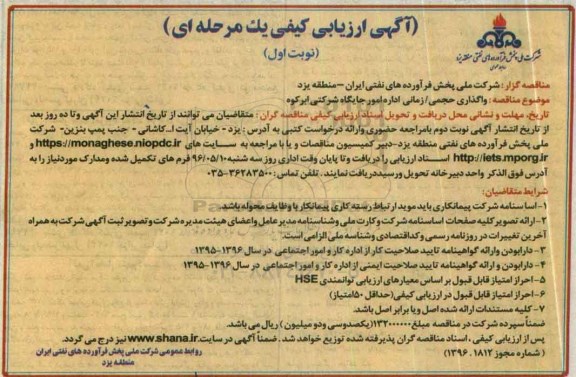 (آگهی ارزیابی کیفی یك مرحله ای)
(نوبت اول)
شرکت ملی پخش فرآورده های نفتی منطقه یزد
مناقصه گزار: شرکت ملی پخش فرآورده های نفتی ایران – منطقه یزد
موضوع مناقصه: واگذاری حجمی/ زمانی اداره امور جایگاه شرکتی ابرکوه
تاریخ، مهلت و نشانی محل دریافت و تحویل اسناد ارزیابی کیفی مناقصه گران: متقاضیان می توانند از تاریخ انتشار این آگهی و تا ده روز بعد
از تاریخ انتشار آگهی نوبت دوم بامراجعه حضوری و ارائه درخواست کتبی به آدرس: یزد - خیابان آیت ا... کاشانی - جنب پمپ بنزین- شرکت
ملی پخش فرآورده های نفتی منطقه یزد-دبیر کمیسیون مناقصات و یا با مراجعه به سایت های https://monaghese.niopdc.ir و
http://iets.mporg.ir اسناد ارزیابی را دریافت و تا پایان وقت اداری روز سه شنبه ۹۶/۰۵/۱۰ فرم های تکمیل شده و مدارک موردنیاز را به
آدرس فوق الذکر واحد دبیرخانه تحویل و رسید دریافت نمایند. تلفن تماس: ۳۶۲۸۳۵۰۰-۰۳۵
شرایط متقاضیان:
۱- اساسنامه شرکت پیمانکاری باید موید ارتباط رسته کاری پیمانکار با وظایف محوله باشد
۲- ارائه تصویر کلیه صفحات اساسنامه شرکت و کارت ملی و شناسنامه مدیرعامل و اعضای هیئت مدیره شرکت و تصویر ثبت آگهی شرکت به همراه
آخرین تغییرات در روزنامه رسمی و کد اقتصادی و شناسه ملی الزامی است.
۳- دارا بودن و ارائه گواهینامه تایید صلاحیت کار از اداره کار و امور اجتماعی در سال ۱۳۹۶-۱۳۹۵
۴- دارا بودن و ارائه گواهینامه تایید صلاحیت ایمنی از اداره کار و امور اجتماعی در سال ۱۳۹۶-۱۳۹۵
۵- احراز امتیاز قابل قبول بر اساس معیارهای ارزیابی توانمندی HSE
۶- احراز امتیاز قابل قبول در ارزیابی کیفی (حداقل ۵۰ امتیاز)
۷- کلیه مستندات ارائه شده اصل و یا برابر اصل باشد.
ضمناً سپرده شرکت در مناقصه مبلغ ۱۳۲۰۰۰۰۰۰ (یکصد و سی و دو میلیون) ریال می باشد.
پس از ارزیابی کیفی، اسناد مناقصه گران پذیرفته شده توزیع خواهد شد. ضمناً آگهی در سایت www.shana.ir نیز درج می گردد.
(شماره مجوز ۱۸۱۲. ۱۳۹۶)
روابط عمومی شرکت ملی پخش فرآورده های نفتی ایران
منطقه یزد